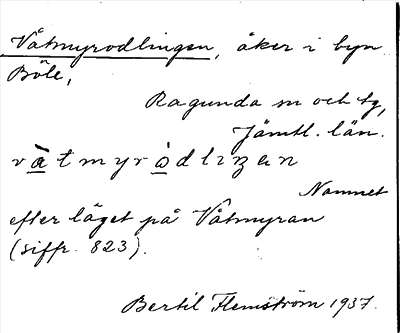 Våtmyrodlingen, åker i byn
Böle,
Ragunda sn och tg,
Jämtl. län.
vàtmyròdlizen
Namnet
efter läget på Våtmyran
(siffr. 823).
Bertil Flemström 1937.